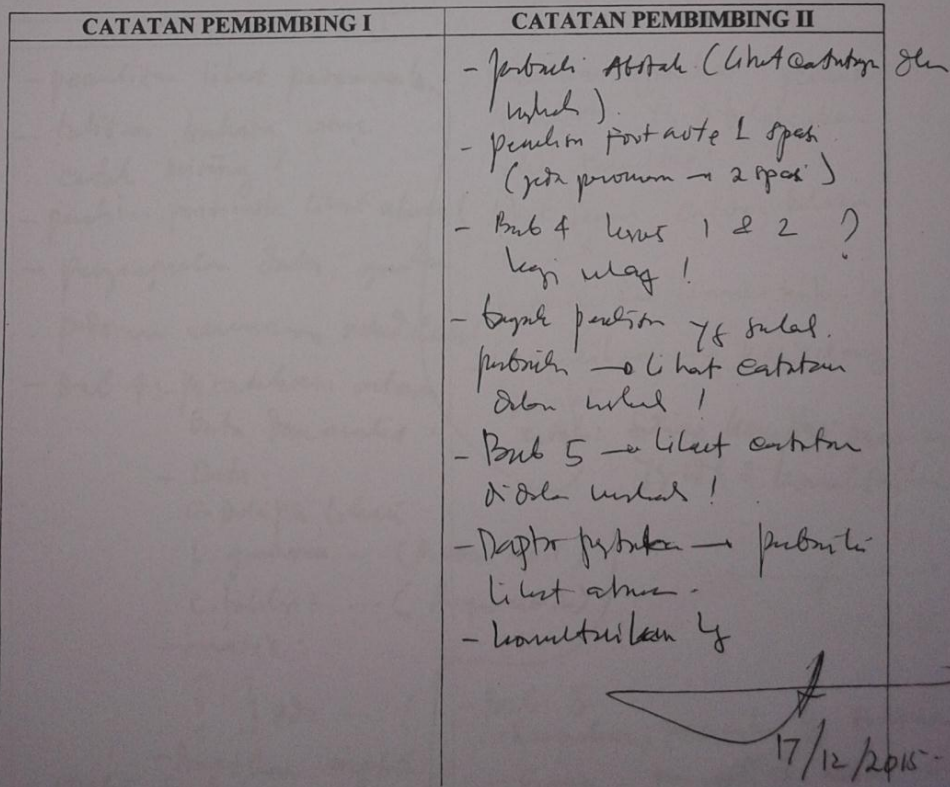 CATATAN PEMBIMBING I
CATATAN PEMBIMBING II
- perbaiki Abstrak (lihat catatan dlm
naskah).
- penulisan foot note 1 spasi
(jeda penomoran → 2 spasi)
- Bab 4 kasus 1 & 2 ?
kaji ulang !
- banyak penulisan yg salah.
perbaiki → lihat catatan
dalam naskah !
- Bab 5 → lihat catatan
di dalam naskah !
- Daptar pustaka → perbaiki
lihat aturan.
- konsultasikan lg
17/12/2015